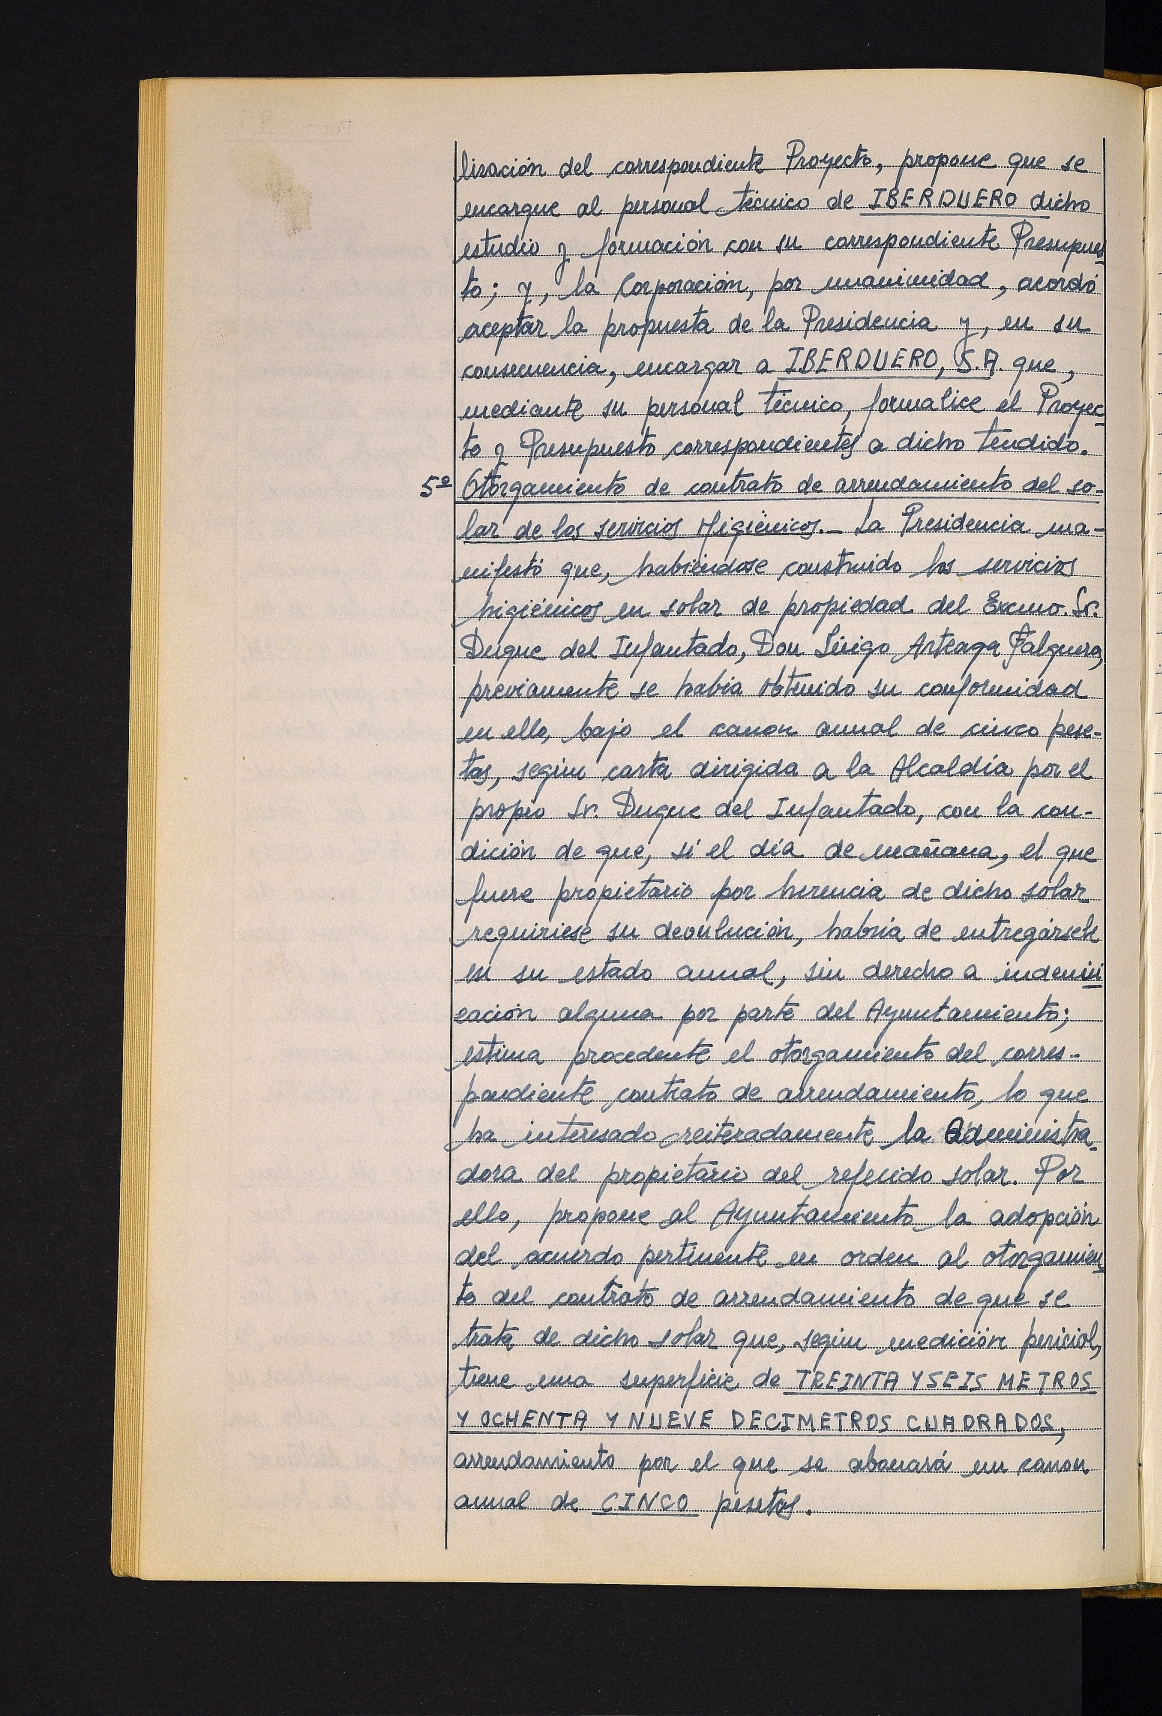 lización del correspondiente Proyecto, propone que se
encargue al personal técnico de IBERDUERO dicho
estudio y formación con su correspondiente Presupues-
to; y, la Corporación, por unanimidad, acordó
aceptar la propuesta de la Presidencia y, en su
consecuencia, encargar a IBERDUERO, S.A. que,
mediante su personal técnico, formalice el Proyec-
to y Presupuesto correspondientes a dicho tendido.
5º Otorgamiento de contrato de arrendamiento del so-
lar de los servicios Higiénicos.- La Presidencia ma-
nifestó que, habiéndose construido los servicios
higiénicos en solar de propiedad del Excmo. Sr.
Duque del Infantado, Don Iñigo Arteaga Falguera,
previamente se había obtenido su conformidad
en ello, bajo el canon anual de cinco pese-
tas, según carta dirigida a la Alcaldía por el
propio Sr. Duque del Infantado, con la con-
dición de que, si el día de mañana, el que
fuere propietario por herencia de dicho solar
requiriese su devolución, habría de entregársele
en su estado anual, sin derecho a indemni
cación alguna por parte del Ayuntamiento;
estima procedente el otorgamiento del corres-
pondiente contrato de arrendamiento, lo que
ha interesado reiteradamente la Administra-
dora del propietario del referido solar. Por
ello, propone al Ayuntamiento la adopción
del acuerdo pertinente en orden al otorgamien-
to del contrato de arrendamiento de que se
trata de dicho solar que, según medición pericial,
tiene una superficie de TREINTA Y SEIS METROS
Y OCHENTA Y NUEVE DECIMETROS CUADRADOS,
arrendamiento por el que se abonará un canon
anual de CINCO pesetas.